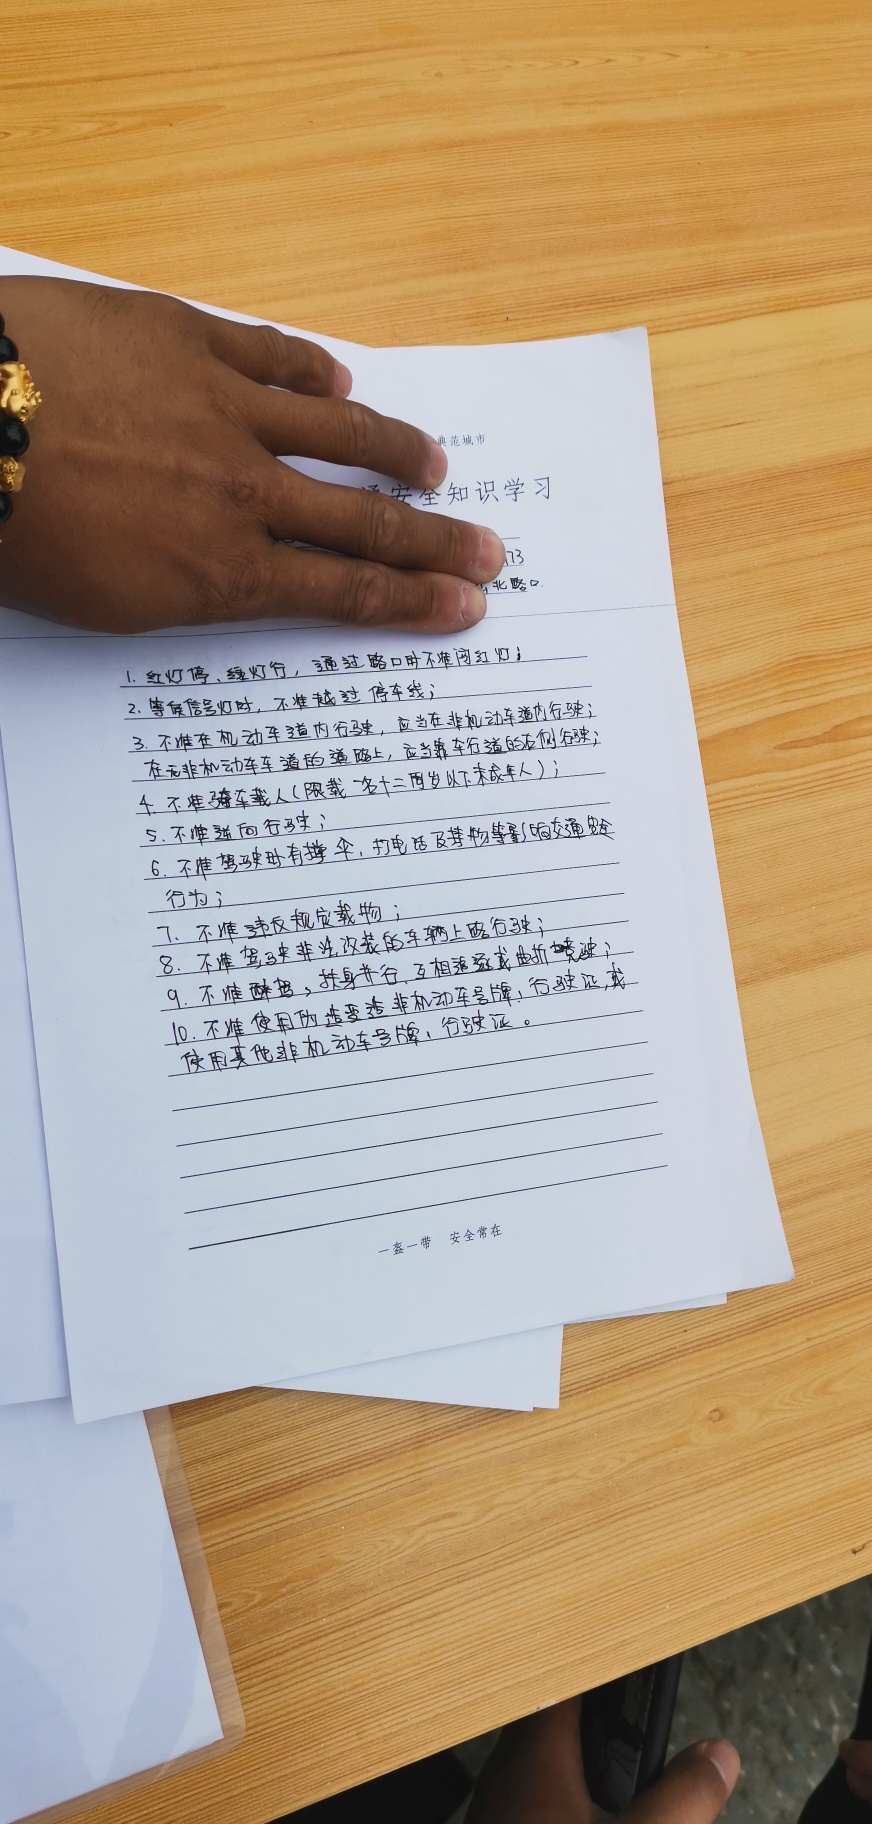 典范城市
通安全知识学习
173
北路口
1. 红灯停、绿灯行，通过路口时不准闯红灯；
2. 等候信号灯时，不准越过停车线；
3. 不准在机动车道内行驶，应当在非机动车道内行驶；
在无非机动车车道的道路上，应当靠车行道的右侧行驶；
4. 不准骑车载人（限载一名十二周岁以下未成年人）；
5. 不准逆向行驶；
6. 不准驾驶时有撑伞，打电话及其物等影响交通安全
行为；
7. 不准违反规定载物；
8. 不准驾驶非法改装的车辆上路行驶；
9. 不准醉驾，扶身并行，互相追逐或曲折驶；
10. 不准使用伪造变造非机动车号牌，行驶证，或
使用其他非机动车号牌，行驶证。
一盔一带 安全常在